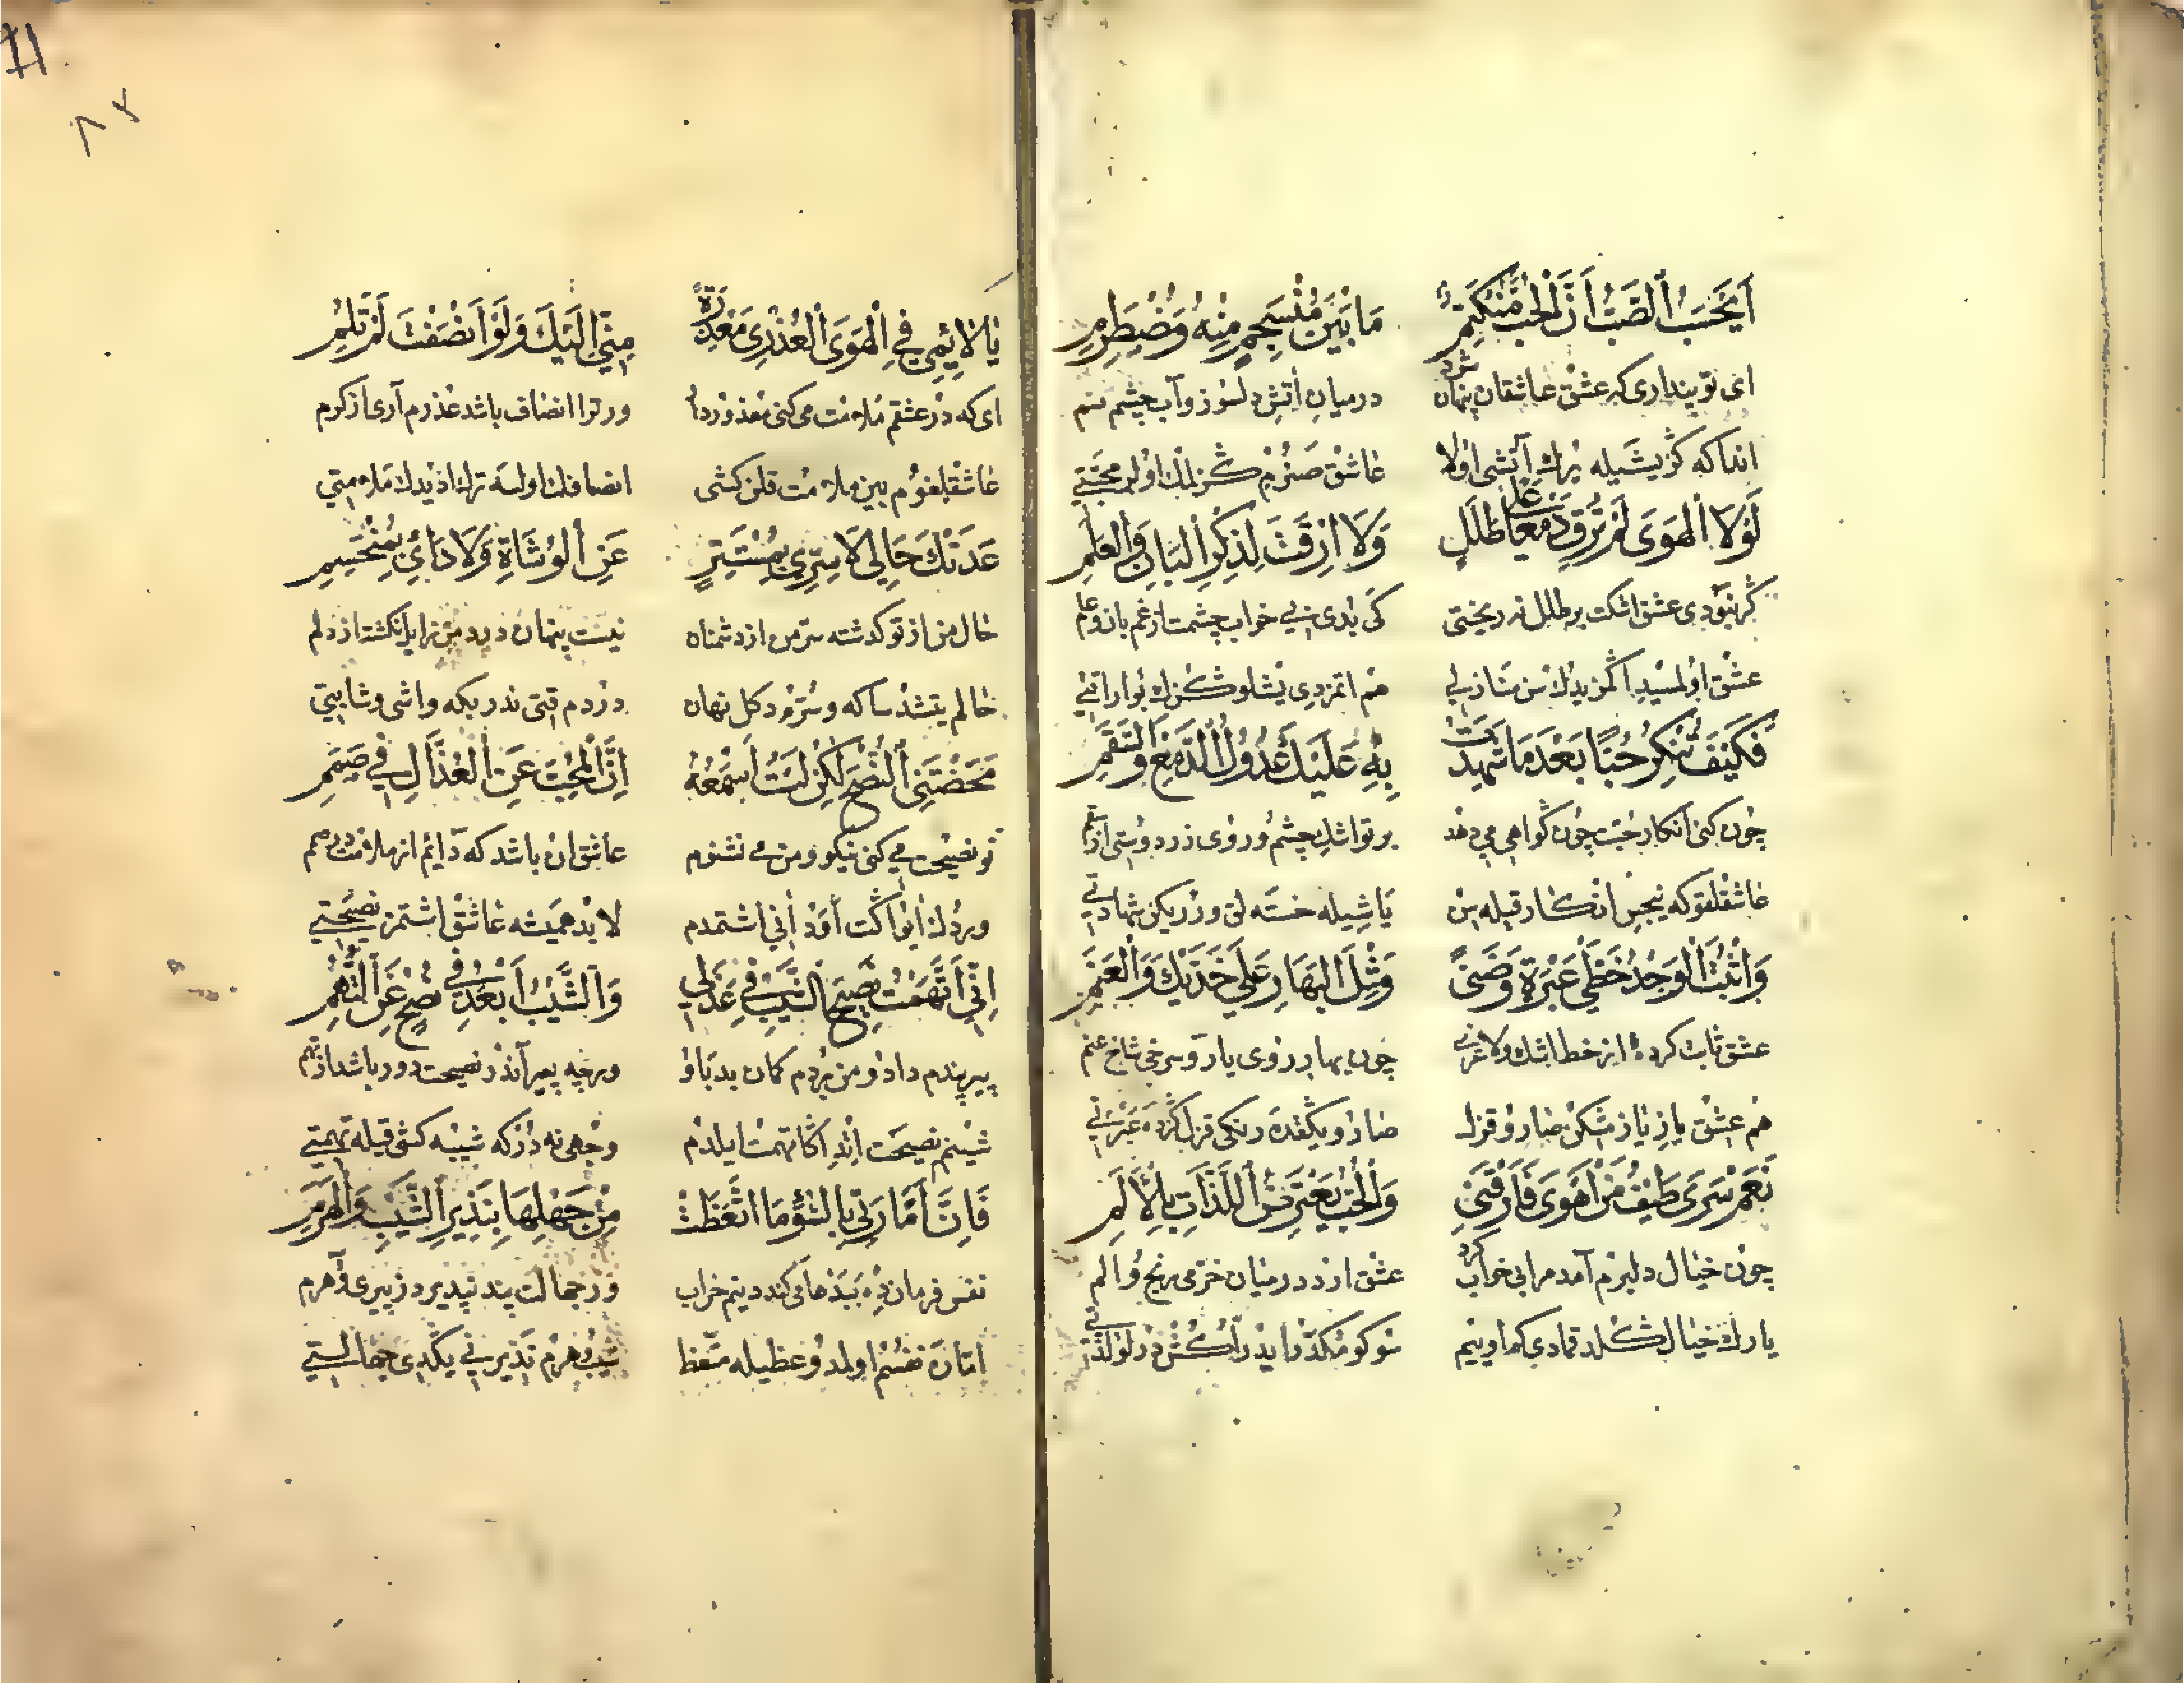 اَيَحْسَبُ الصَّبُّ اَنَّ الْحُبَّ مُنْكَتِمٌ مَا بَيْنَ مُنْسَجِمٍ مِنْهُ وَمُضْطَرِمِ
ای تو پنداری که عشق عاشقان پنهان شود در میان آتش دلسوز و آب چشم
اندا که كز یشیله یرك آتشی اولا عاشق صنرمی كزلمك اولر محبتی
لَوْلَا الْهَوَى لَمْ تُرِقْ دَمْعًا عَلَى طَلَلٍ وَلَا اَرِقْتَ لِذِكْرِ الْبَانِ وَالْعَلَمِ
گر نبودی عشق اشکت بر طلل نه ریختی کی بدی بی خواب چشمت از غم بان و علم
عشق اولمسیدی اكمزیدك سن هم
فَكَيْفَ تُنْكِرُ حُبًّا بَعْدَ مَا شَهِدَتْ بِهِ عَلَيْكَ عُدُولُ الدَّمْعِ وَالسَّقَمِ
چون کنی انکار حبت چون گواهی می دهد بر تو اشک چشم و روی زرد و سستی از سقم
عاشقلغوکه نیجس انکار قیله سن یاشیله خسته لق ویررکن شهادتی
وَاَثْبَتَ الْوَجْدُ خَطَّيْ عَبْرَةٍ وَضَنًى مِثْلَ الْبَهَارِ عَلَى خَدَّيْكَ وَالْعَنَمِ
عشق ثابت کرده از خط اشک و لاغری چون بهار بر روی یار و سرخی شاخ عنم
هم عشق یازی یازمش صارو قزل صارو یكغده رنکی قزل
نَعَمْ سَرَى طَيْفُ مَنْ اَهْوَى فَاَرَّقَنِي وَالْحُبُّ يَعْتَرِضُ اللَّذَّاتِ بِالْاَلَمِ
چون خیال دلبرم آمد مرا بی خواب کرد عشق ارد در میان خرمی رنج و الم
یارك خیالی كلد قمادی كه اویم سوکو مکدر ایدر
يَا لَائِمِي فِي الْهَوَى الْعُذْرِيِّ مَعْذِرَةً مِنِّي اِلَيْكَ وَلَوْ اَنْصَفْتَ لَمْ تَلُمِ
ای که در عشقم ملامت می کنی معذور دار ور ترا انصاف باشد عذرم آری از کرم
عاشقلغوم ایچن ملامت قلن کشی انصافك اولسه ترك ایدیدك ملامتی
عَدَتْكَ حَالِي لَا سِرِّي بِمُسْتَتِرٍ عَنِ الْوُشَاةِ وَلَا دَائِي بِمُنْحَسِمِ
حال من از تو گذشته سر من از دشمنان نیست پنهان درد من زایل نکشته از دلم
حالم یتشد ساکه و سرم دکل نهان دردم
مَحَضْتَنِي النُّصْحَ لَكِنْ لَسْتُ اَسْمَعُهُ اِنَّ الْمُحِبَّ عَنِ الْعُذَّالِ فِي صَمَمِ
تو نصیحت می کنی نیکو و من می نشنوم عاشق ان باشد که دائم از ملامت در صمم
ویردك ایو اکت اود انی اشتمدم لابد همیشه عاشق اشتمز نصیحتی
اِنِّي اتَّهَمْتُ نَصِيحَ الشَّيْبِ فِي عَذَلِي وَالشَّيْبُ اَبْعَدُ فِي نُصْحٍ عَنِ التُّهَمِ
پیر پندم داد و من بردم کمان بد باو ورچه پیر اندر نصیحت دور باشد از تهم
شیبم نصیحت اتدی اكا تهمت ایلدم وجهی نه درکه شیبه کشی قیله تهمتی
فَاِنَّ اَمَّارَتِي بِالسُّوءِ مَا اتَّعَظَتْ مِنْ جَهْلِهَا بِنَذِيرِ الشَّيْبِ وَالْهَرَمِ
نفس فرمان ده ببدها می کند دینم خراب وز جهالت پند نپذیرد ز پیری و هرم
اماره نفسم اولمدی وعظیله متعظ شیب و هرم نذیرنی